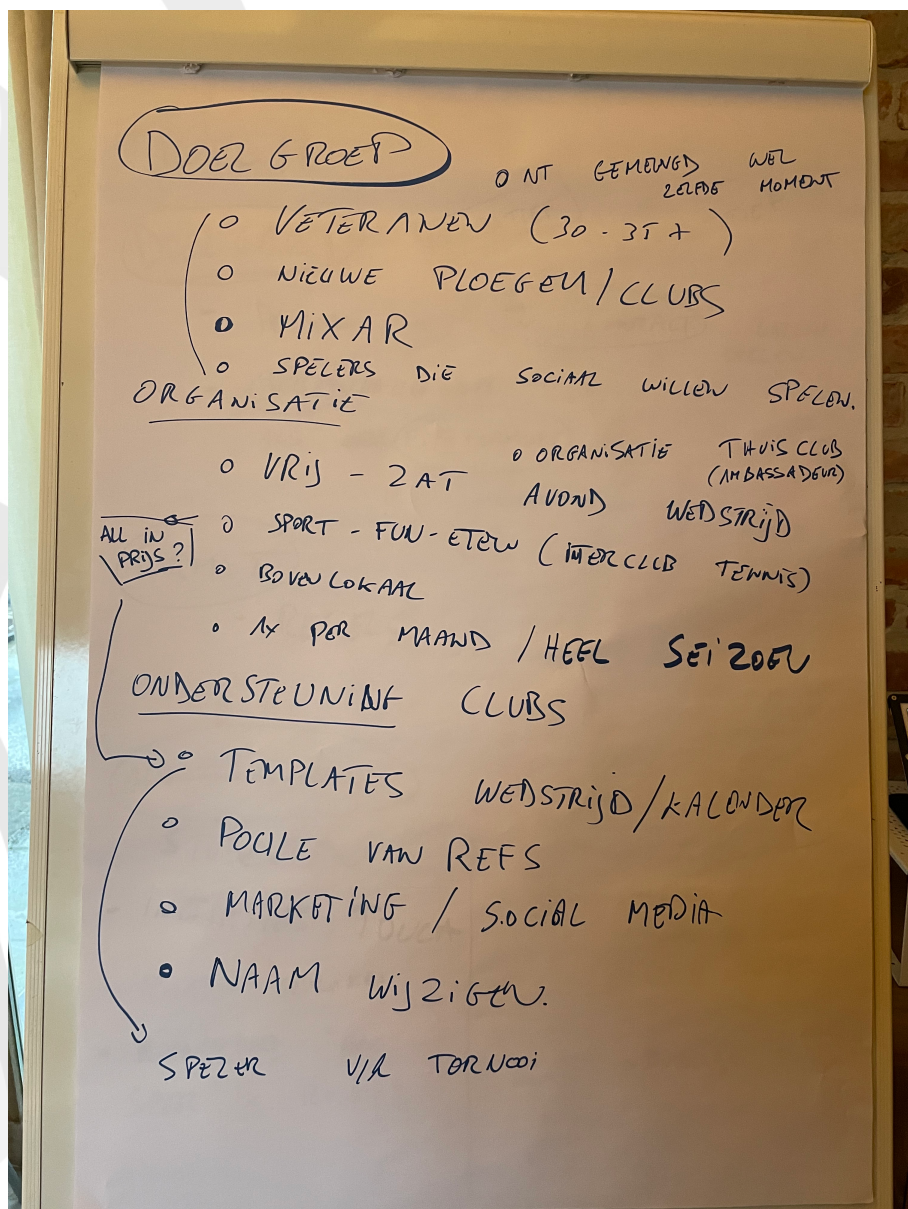 DOELGROEP
o NT GEMENGD WEL
ZELFDE MOMENT
o VETERANEN (30-35+)
o NIEUWE PLOEGEN/CLUBS
o MIXAR
o SPELERS DIE SOCIAAL WILLEN SPELEN.
ORGANISATIE
o ORGANISATIE THUISCLUB
(AMBASSADEUR)
o VRIJ - ZAT AVOND WEDSTRIJD
ALL IN
PRIJS?
o SPORT - FUN - ETEN (INTERCLUB TENNIS)
o BOVENLOKAAL
o 1x PER MAAND / HEEL SEIZOEN
ONDERSTEUNING CLUBS
o TEMPLATES WEDSTRIJD/KALENDER
o POULE VAN REFS
o MARKETING / SOCIAL MEDIA
o NAAM WIJZIGEN.
V/H TORNOOI